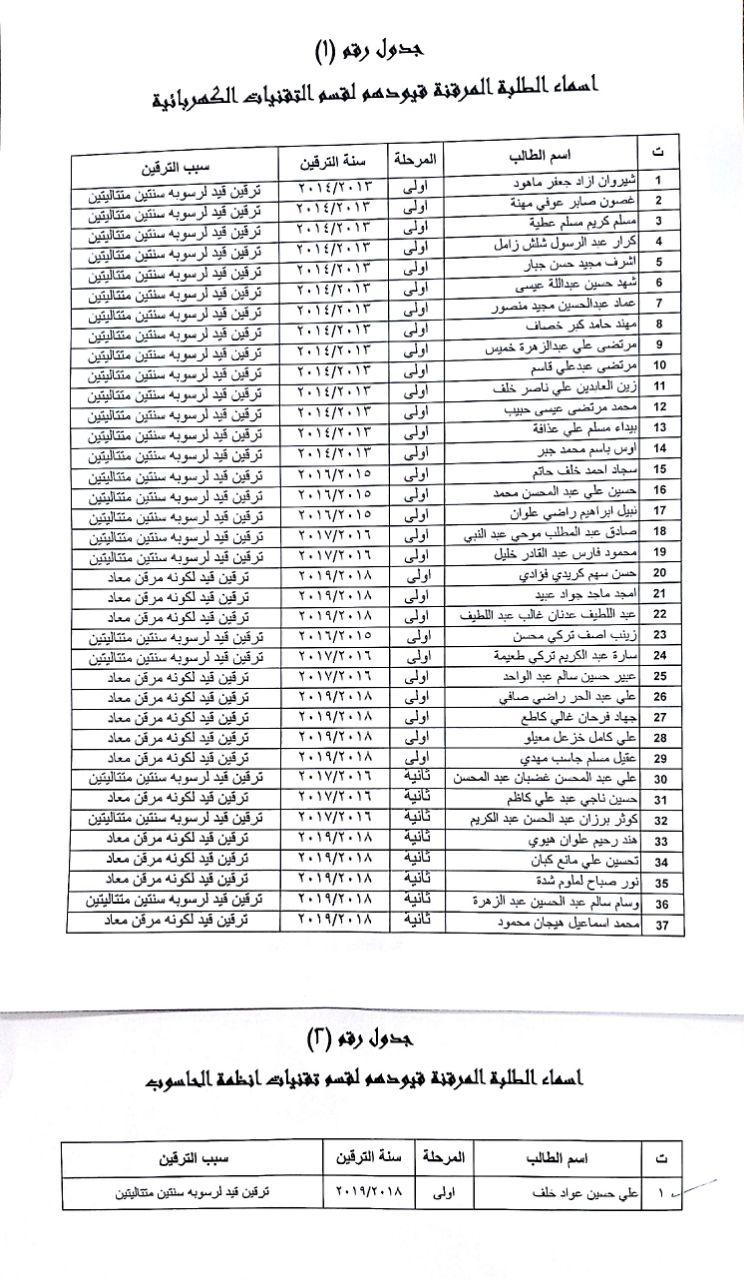 جدول رقم (١)
اسماء الطلبة المرقنة قيودهم لقسم التقنيات الكهربائية
ت اسم الطالب المرحلة سنة الترقين سبب الترقين
1 شيروان ازاد جعفر ماهود اولى ٢٠١٤/٢٠١٣ ترقين قيد لرسوبه سنتين متتاليتين
2 غصون صابر عوفي مهنة اولى ٢٠١٤/٢٠١٣ ترقين قيد لرسوبه سنتين متتاليتين
3 مسلم كريم مسلم عطية اولى ٢٠١٤/٢٠١٣ ترقين قيد لرسوبه سنتين متتاليتين
4 كرار عبد الرسول شلش زامل اولى ٢٠١٤/٢٠١٣ ترقين قيد لرسوبه سنتين متتاليتين
5 اشرف مجيد حسن جبار اولى ٢٠١٤/٢٠١٣ ترقين قيد لرسوبه سنتين متتاليتين
6 شهد حسين عبداللة عيسى اولى ٢٠١٤/٢٠١٣ ترقين قيد لرسوبه سنتين متتاليتين
7 عماد عبدالحسين مجيد منصور اولى ٢٠١٤/٢٠١٣ ترقين قيد لرسوبه سنتين متتاليتين
8 مهند حامد كبر خصاف اولى ٢٠١٤/٢٠١٣ ترقين قيد لرسوبه سنتين متتاليتين
9 مرتضى علي عبدالزهرة خميس اولى ٢٠١٤/٢٠١٣ ترقين قيد لرسوبه سنتين متتاليتين
10 مرتضى عبدعلي قاسم اولى ٢٠١٤/٢٠١٣ ترقين قيد لرسوبه سنتين متتاليتين
11 زين العابدين علي ناصر خلف اولى ٢٠١٤/٢٠١٣ ترقين قيد لرسوبه سنتين متتاليتين
12 محمد مرتضى عيسى حبيب اولى ٢٠١٤/٢٠١٣ ترقين قيد لرسوبه سنتين متتاليتين
13 بيداء مسلم علي عذافة اولى ٢٠١٤/٢٠١٣ ترقين قيد لرسوبه سنتين متتاليتين
14 اوس باسم محمد جبر اولى ٢٠١٤/٢٠١٣ ترقين قيد لرسوبه سنتين متتاليتين
15 سجاد احمد خلف حاتم اولى ٢٠١٦/٢٠١٥ ترقين قيد لرسوبه سنتين متتاليتين
16 حسين علي عبد المحسن محمد اولى ٢٠١٦/٢٠١٥ ترقين قيد لرسوبه سنتين متتاليتين
17 نبيل ابراهيم راضي علوان اولى ٢٠١٦/٢٠١٥ ترقين قيد لرسوبه سنتين متتاليتين
18 صادق عبد المطلب موحي عبد النبي اولى ٢٠١٧/٢٠١٦ ترقين قيد لرسوبه سنتين متتاليتين
19 محمود فارس عبد القادر خليل اولى ٢٠١٧/٢٠١٦ ترقين قيد لرسوبه سنتين متتاليتين
20 حسن سهم كريدي فؤادي اولى ٢٠١٩/٢٠١٨ ترقين قيد لكونه مرقن معاد
21 امجد ماجد جواد عبيد اولى ٢٠١٩/٢٠١٨ ترقين قيد لكونه مرقن معاد
22 عبد اللطيف عدنان غالب عبد اللطيف اولى ٢٠١٩/٢٠١٨ ترقين قيد لكونه مرقن معاد
23 زينب اصف تركي محسن اولى ٢٠١٦/٢٠١٥ ترقين قيد لرسوبه سنتين متتاليتين
24 سارة عبد الكريم تركي طعيمة اولى ٢٠١٧/٢٠١٦ ترقين قيد لرسوبه سنتين متتاليتين
25 عبير حسين سالم عبد الواحد اولى ٢٠١٧/٢٠١٦ ترقين قيد لكونه مرقن معاد
26 علي عبد الحر راضي صافي اولى ٢٠١٩/٢٠١٨ ترقين قيد لكونه مرقن معاد
27 جهاد فرحان غالي كاطع اولى ٢٠١٩/٢٠١٨ ترقين قيد لكونه مرقن معاد
28 علي كامل خزعل معيلو اولى ٢٠١٩/٢٠١٨ ترقين قيد لكونه مرقن معاد
29 عقيل مسلم جاسب مهدي اولى ٢٠١٩/٢٠١٨ ترقين قيد لكونه مرقن معاد
30 علي عبد المحسن غضبان عبد المحسن ثانية ٢٠١٧/٢٠١٦ ترقين قيد لرسوبه سنتين متتاليتين
31 حسين ناجي عبد علي كاظم ثانية ٢٠١٧/٢٠١٦ ترقين قيد لكونه مرقن معاد
32 كوثر برزان عبد الحسن عبد الكريم ثانية ٢٠١٧/٢٠١٦ ترقين قيد لرسوبه سنتين متتاليتين
33 هند رحيم علوان هيوي ثانية ٢٠١٩/٢٠١٨ ترقين قيد لكونه مرقن معاد
34 تحسين علي مانع كبان ثانية ٢٠١٩/٢٠١٨ ترقين قيد لكونه مرقن معاد
35 نور صباح لملوم شدة ثانية ٢٠١٩/٢٠١٨ ترقين قيد لكونه مرقن معاد
36 وسام سالم عبد الحسين عبد الزهرة ثانية ٢٠١٩/٢٠١٨ ترقين قيد لرسوبه سنتين متتاليتين
37 محمد اسماعيل هيجان محمود ثانية ٢٠١٩/٢٠١٨ ترقين قيد لكونه مرقن معاد
جدول رقم (٢)
اسماء الطلبة المرقنة قيودهم لقسم تقنيات انظمة الحاسوب
ت اسم الطالب المرحلة سنة الترقين سبب الترقين
١ علي حسين عواد خلف اولى ٢٠١٩/٢٠١٨ ترقين قيد لرسوبه سنتين متتاليتين